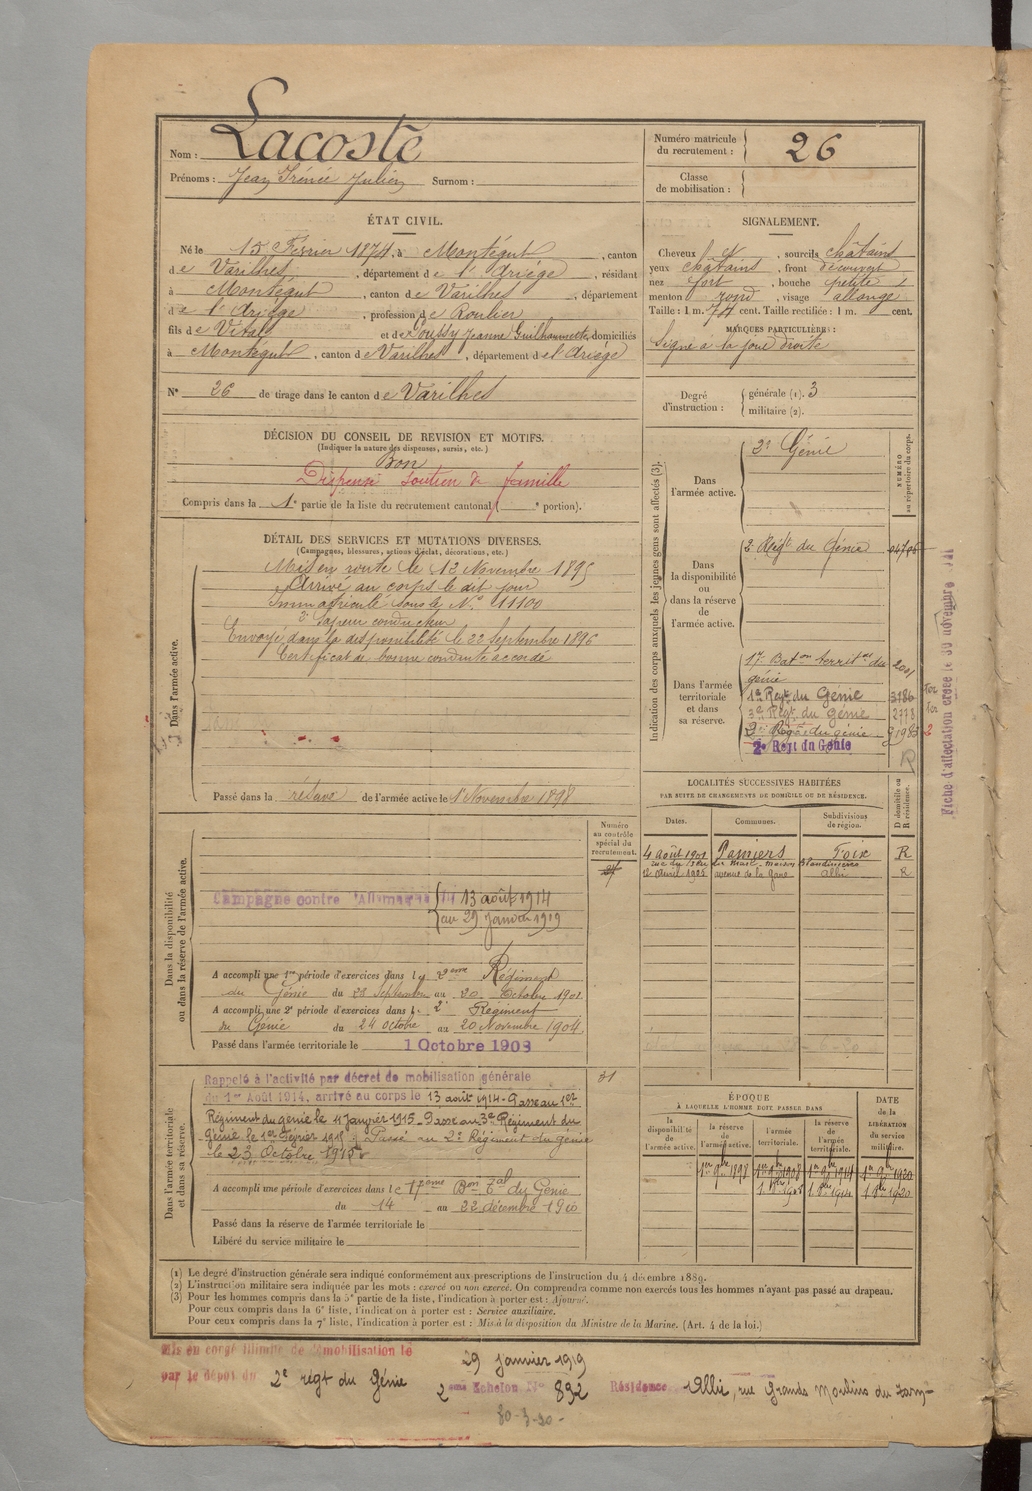 Nom : Lacoste
Prénoms : Jean Irénée Julien Surnom :
Numéro matricule du recrutement : 26
Classe de mobilisation :
ÉTAT CIVIL.
Né le 15 Février 1874, à Montégut, canton
de Varilhes, département de l'Ariège, résidant
à Montégut, canton de Varilhes, département
de l'Ariège, profession de Roulier
fils de Vital et de Poussy Jeanne Guilhaumette, domiciliés
à Montégut, canton de Varilhes, département de l'Ariège
N° 26 de tirage dans le canton de Varilhes
SIGNALEMENT.
Cheveux et, sourcils châtains
yeux châtains, front découvert
nez fort, bouche petite
menton rond, visage allongé
Taille : 1 m. 74 cent. Taille rectifiée : 1 m. cent.
MARQUES PARTICULIÈRES :
Signe à la joue droite
Degré d'instruction : générale (1). 3
militaire (2).
DÉCISION DU CONSEIL DE REVISION ET MOTIFS.
(Indiquer la nature des dispenses, sursis, etc.)
Bon
Dispensé soutien de famille
Compris dans la 1e partie de la liste du recrutement cantonal ( e portion).
DÉTAIL DES SERVICES ET MUTATIONS DIVERSES.
(Campagnes, blessures, actions d'éclat, décorations, etc.)
Dans l'armée active.
Mis en route le 12 Novembre 1895
Arrivé au corps le dit jour
Immatriculé sous le N° 11100
2e Sapeur conducteur
Envoyé dans la disponibilité le 22 Septembre 1896
Certificat de bonne conduite accordé
Passé dans la réserve de l'armée active le 1 Novembre 1898
Indication des corps auxquels les jeunes gens sont affectés (3).
NUMÉRO au répertoire du corps.
Dans l'armée active.
2e Génie
Dans la disponibilité ou dans la réserve de l'armée active.
2e Régt du Génie
Dans l'armée territoriale et dans sa réserve.
17e Baton territal du génie 2001
1er Régt du Génie 3186
3e Régt du génie 2778
2e Régt du génie
2e Régt du Génie
R
Fiche d'affectation créée le 30 novembre
LOCALITÉS SUCCESSIVES HABITÉES
PAR SUITE DE CHANGEMENTS DE DOMICILE OU DE RÉSIDENCE.
Dates. Communes. Subdivisions de région. D domicile ou R résidence.
4 août 1901 Pamiers Foix R
12 Avril 1905 avenue de la gare Albi R
Numéro au contrôle spécial du recrutement.
Dans la disponibilité ou dans la réserve de l'armée active.
Campagne contre l'Allemagne du 13 août 1914
au 29 Janvier 1919
A accompli une 1re période d'exercices dans le 2eme Régiment
du Génie du 23 Septembre au 20 Octobre 1901
A accompli une 2e période d'exercices dans le 2e Régiment
du Génie du 24 octobre au 20 Novembre 1904
Passé dans l'armée territoriale le 1 Octobre 1908
Dans l'armée territoriale et dans sa réserve.
Rappelé à l'activité par décret de mobilisation générale
du 1er Août 1914, arrivé au corps le 13 août 1914 - Passé au 1er
Régiment du génie le 11 Janvier 1915 - Passé au 3e Régiment du
Génie le 1er Février 1915 - Passé au 2e Régiment du génie
le 23 Octobre 1915
A accompli une période d'exercices dans le 17eme Bon Tal du Génie
du 14 au 22 décembre 1910
Passé dans la réserve de l'armée territoriale le
Libéré du service militaire le
ÉPOQUE
À LAQUELLE L'HOMME DOIT PASSER DANS
la disponibilité de l'armée active. la réserve de l'armée active. l'armée territoriale. la réserve de l'armée territoriale.
DATE de la LIBÉRATION du service militaire.
1er 9bre 1898 1er 9bre 1908 1er 9bre 1914 1er 9bre 1920
1 8bre 1908 1 8bre 1914 1 8bre 1920
(1) Le degré d'instruction générale sera indiqué conformément aux prescriptions de l'instruction du 4 décembre 1889.
(2) L'instruction militaire sera indiquée par les mots : exercé ou non exercé. On comprendra comme non exercés tous les hommes n'ayant pas passé au drapeau.
(3) Pour les hommes compris dans la 5e partie de la liste, l'indication à porter est : Ajourné.
Pour ceux compris dans la 6e liste, l'indication à porter est : Service auxiliaire.
Pour ceux compris dans la 7e liste, l'indication à porter est : Mis à la disposition du Ministre de la Marine. (Art. 4 de la loi.)
Mis en congé illimité de démobilisation le 29 janvier 1919
par le dépôt du 2e régt du Génie 2eme Echelon N° 892 Résidence Albi, rue Grands Moulins du Tarn